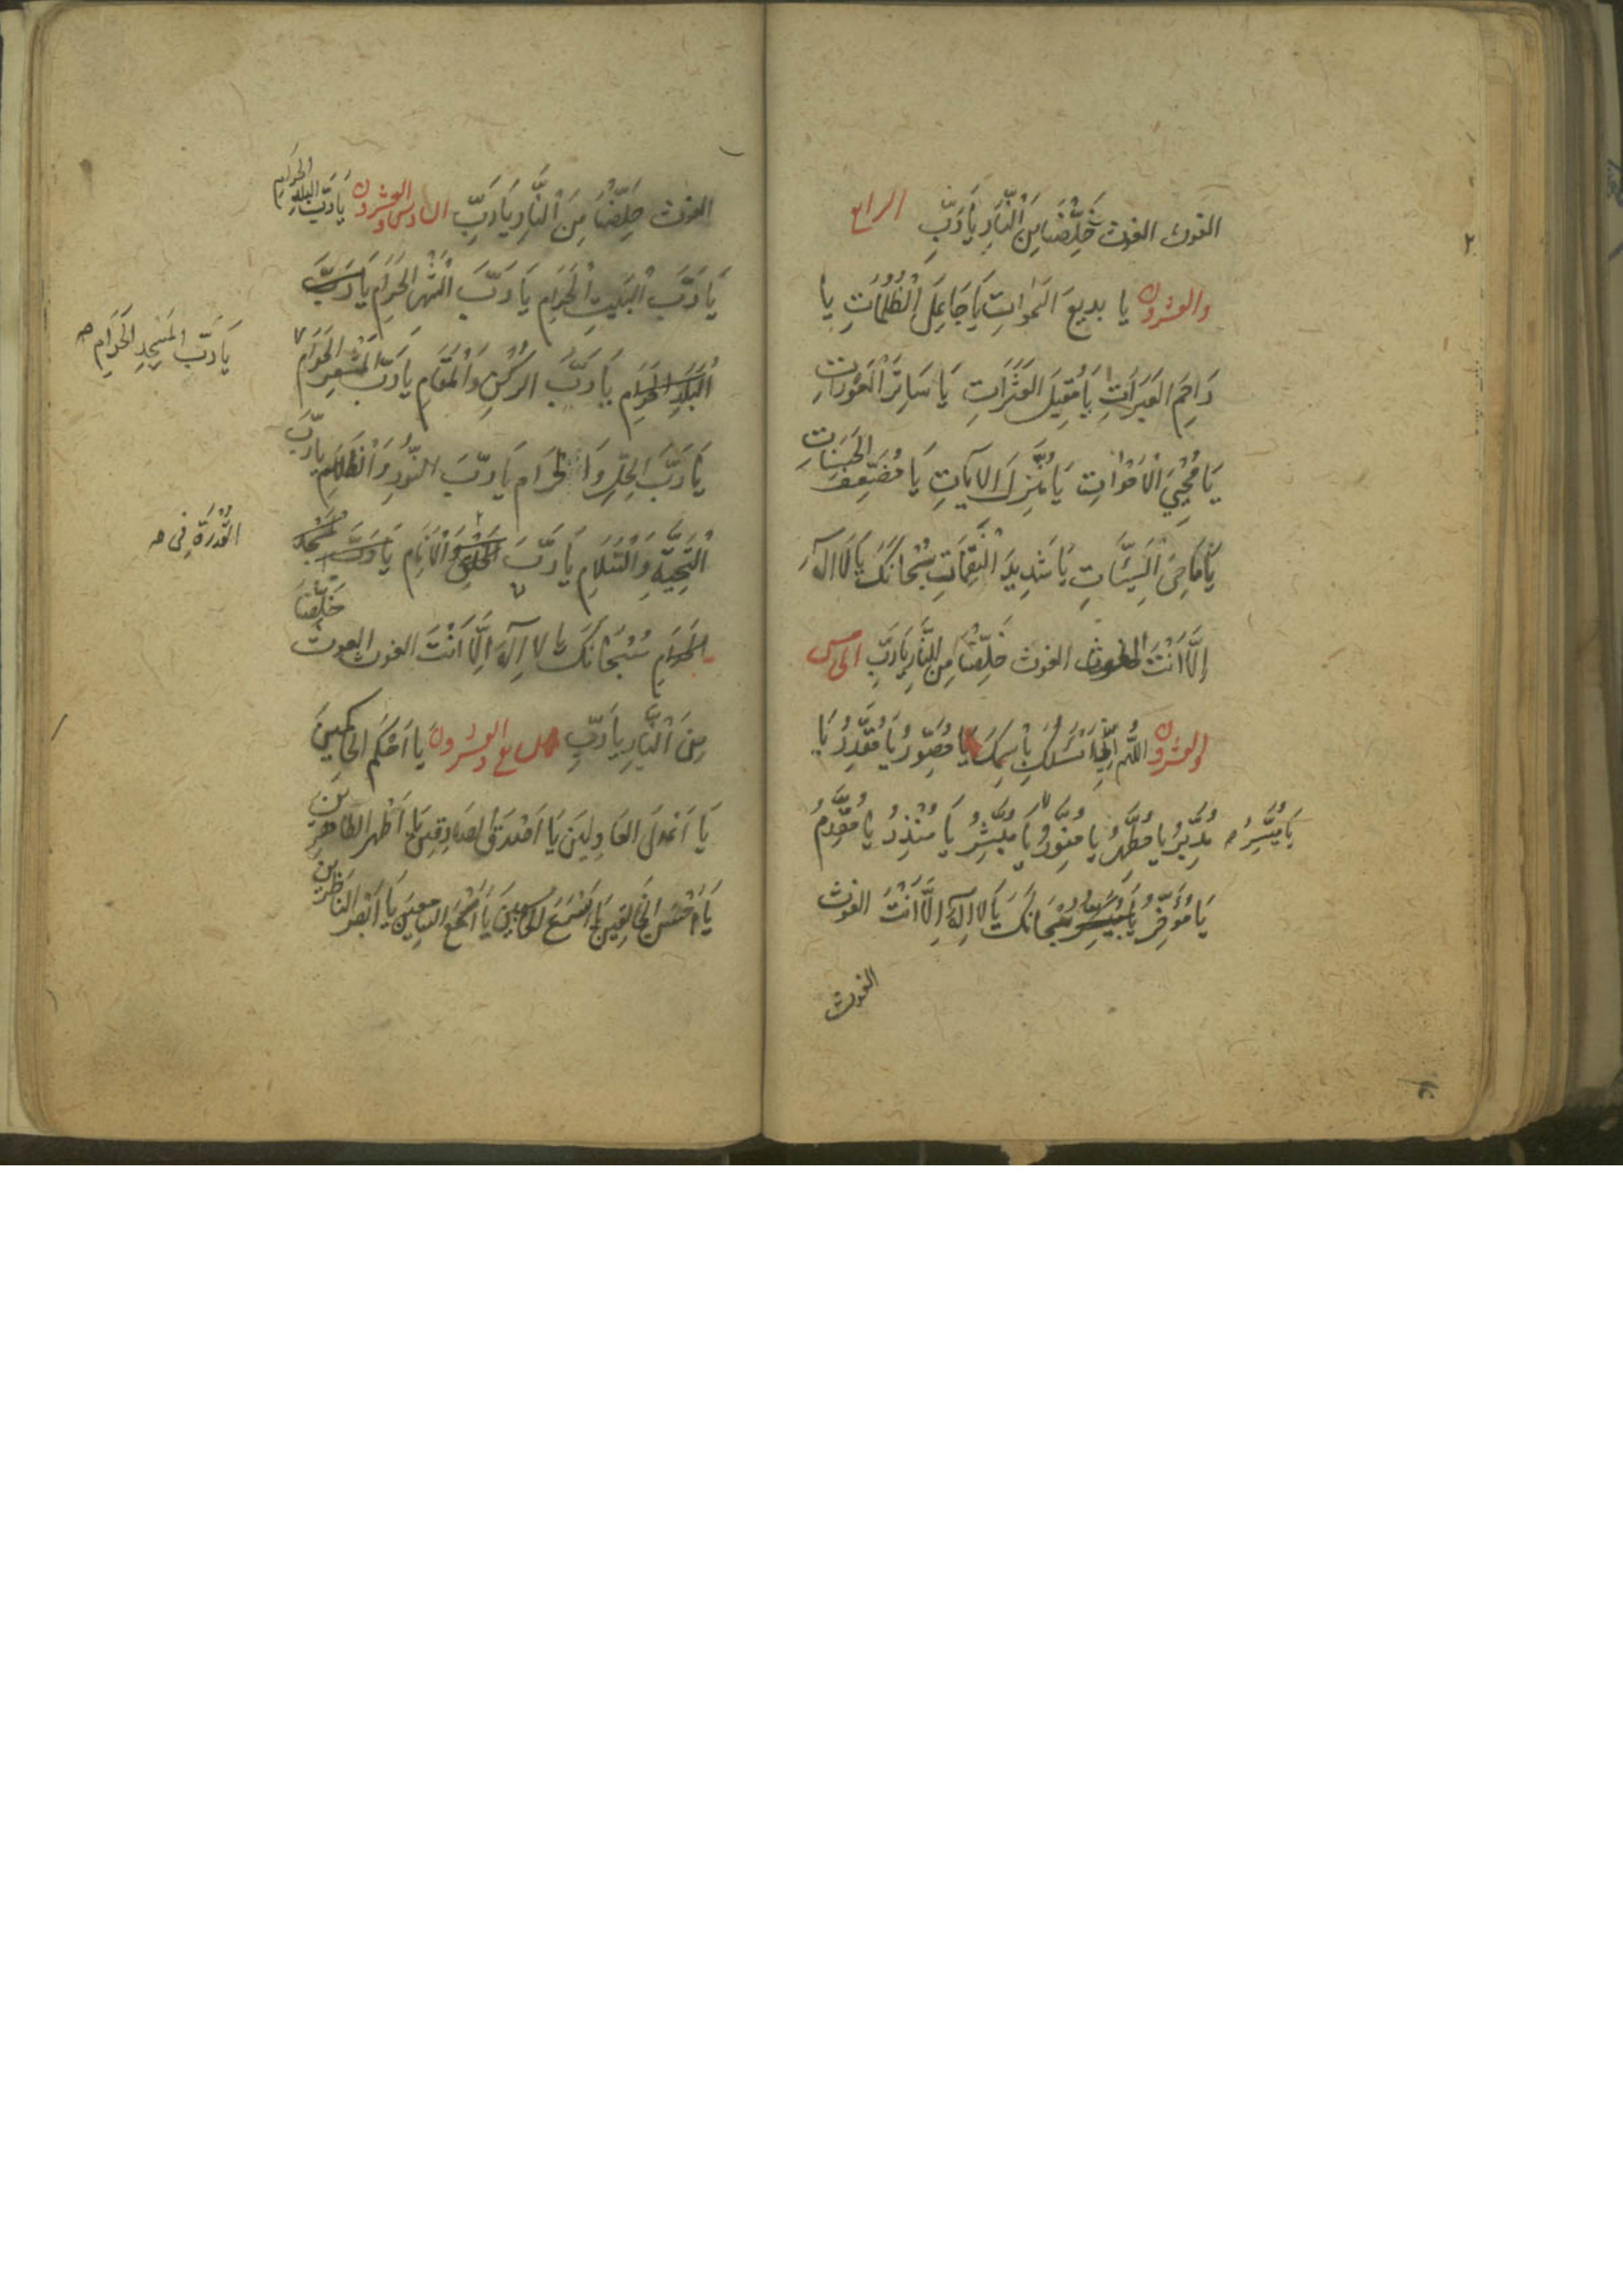 الغوث الغوث خَلِّصْنَا مِنَ النَّارِ يَا رَبِّ الرابع
والعشرون يا بديعَ السَّمٰوَاتِ يَا جَاعِلَ الظُّلُمَاتِ يا
رَاحِمَ العَبَرَاتِ يَا مُقِيلَ العَثَرَاتِ يَا سَاتِرَ الْعَوْرَاتِ
يَا مُحْيِيَ الْاَمْوَاتِ يَا مُنْزِلَ الاٰيَاتِ يَا مُضَعِّفَ الْحَسَنَاتِ
يَا مَاحِيَ السَّيِّئَاتِ يَا شَدِيدَ النَّقِمَاتِ سُبْحَانَكَ يَا لَا اِلٰهَ
اِلَّا اَنْتَ الغوث الغوث خَلِّصْنَا مِنَ النَّارِ يَا رَبِّ الخامس
والعشرون اللّٰهُمَّ اِنِّي اَسْئَلُكَ بِاسْمِكَ يَا مُصَوِّرُ يَا مُقَدِّرُ يَا
مُدَبِّرُ يَا مُطَهِّرُ يا مُنَوِّرُ يَا مُبَشِّرُ يَا مُنْذِرُ يا مُقَدِّمُ
يَا مُيَسِّرُ
يَا مُؤَخِّرُ يَا سُبْحَانَكَ يَا لا اِلٰهَ اِلَّا اَنْتَ الغوث
الغوث
الغوث خَلِّصْنَا مِنَ النَّارِ يَا رَبِّ السادس والعشرون يَا رَبَّ البلدِ الحرامِ
يَا رَبَّ الْبَيْتِ الْحَرَامِ يَا رَبَّ الشَّهْرِ الحَرَامِ يَا رَبَّ
يَا رَبَّ المَسْجِدِ الْحَرَامِ
الْبَلَدِ الْحَرَامِ يَا رَبَّ الرُّكْنِ وَالْمَقَامِ يَا رَبَّ الْمَشْعَرِ الحَرَامِ
يَا رَبَّ الحِلِّ وَالْحَرَامِ يَا رَبَّ النُّورِ وَالظَّلَامِ يا رَبَّ
التَّحِيَّةِ وَالسَّلَامِ يَا رَبَّ الْخَلْقِ وَالْاَنَامِ يَا رَبَّ
الْقُدْرَةِ فِى
الْحَرَامِ سُبْحَانَكَ يا لا اِلٰهَ اِلَّا اَنْتَ الغوث الغوث خَلِّصْنَا
مِنَ النَّارِ يَا رَبِّ السابع والعشرون يا اَحْكَمَ الحَاكِمِينَ
يَا اَعْدَلَ العَادِلِينَ يَا اَصْدَقَ الصَادِقِينَ يَا اَطْهَرَ الطَّاهِرِينَ
يَا اَحْسَنَ الخَالِقِينَ يَا اَسْرَعَ الحَاسِبِينَ يَا اَسْمَعَ السَّامِعِينَ يَا اَبْصَرَ النَاظِرِينَ